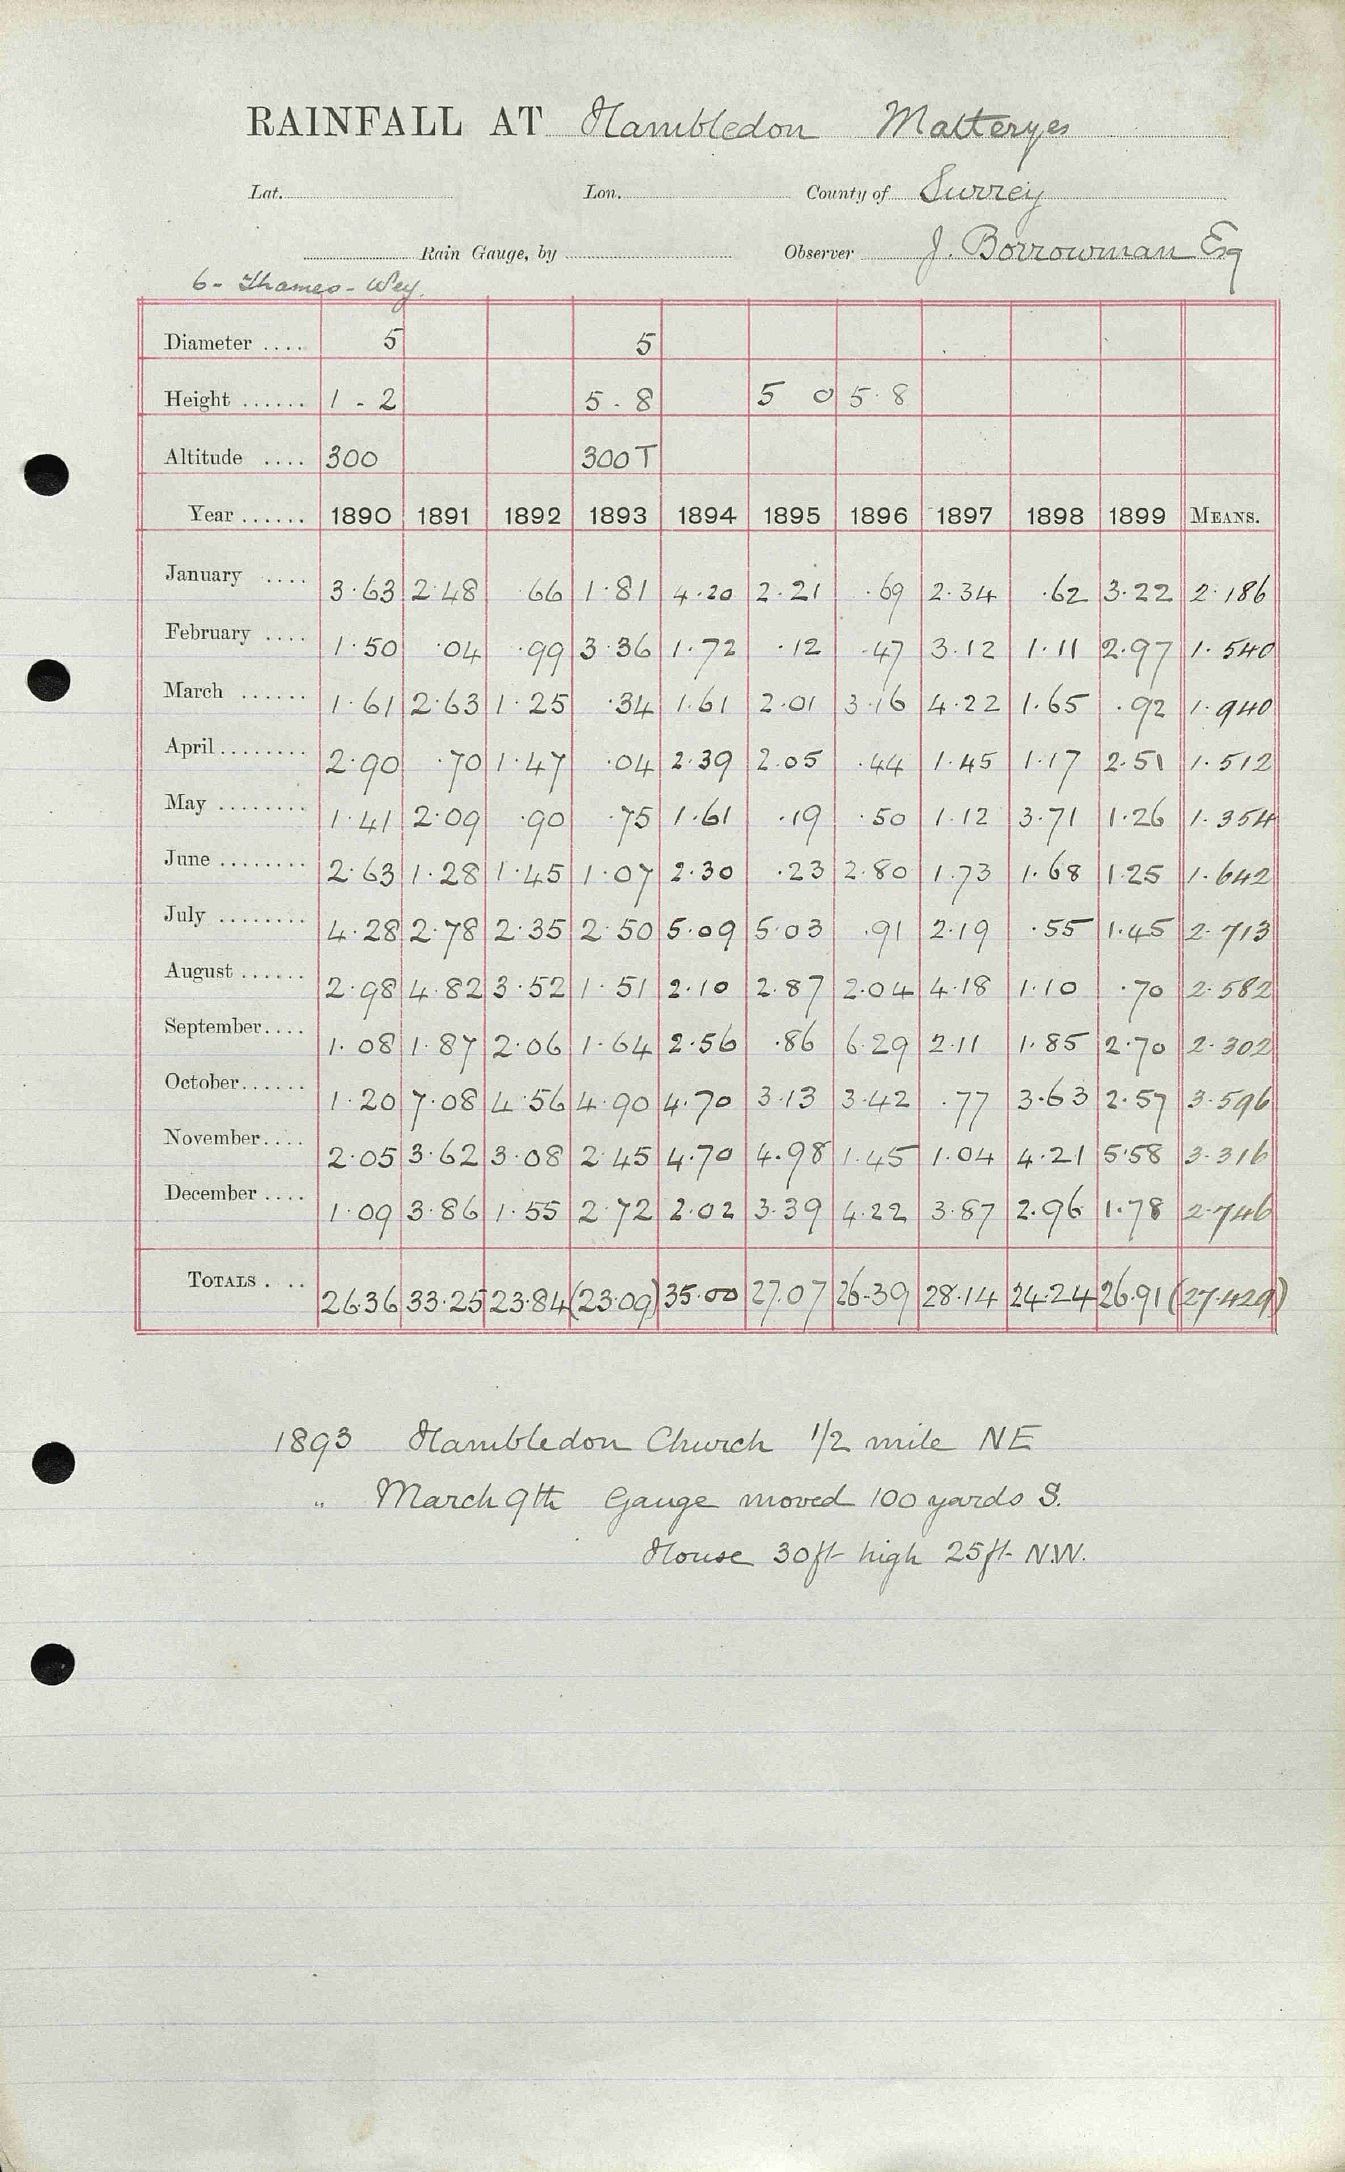 RAINFALL AT Hambledon Malteryes
Lat. Lon. County of Surrey
Rain Gauge, by Observer J. Borrowman Esq
6 - Thames - Wey.
Diameter .... 5 5
Height ...... 1 - 2 5 - 8 5 0 5·8
Altitude .... 300 300T
Year ...... 1890 1891 1892 1893 1894 1895 1896 1897 1898 1899 MEANS.
January .... 3·63 2·48 ·66 1·81 4·20 2·21 ·69 2·34 ·62 3·22 2·186
February .... 1·50 ·04 ·99 3·36 1·72 ·12 ·47 3·12 1·11 2·97 1·540
March ...... 1·61 2·63 1·25 ·34 1·61 2·01 3·16 4·22 1·65 ·92 1·940
April ........ 2·90 ·70 1·47 ·04 2·39 2·05 ·44 1·45 1·17 2·51 1·512
May ........ 1·41 2·09 ·90 ·75 1·61 ·19 ·50 1·12 3·71 1·26 1·354
June ........ 2·63 1·28 1·45 1·07 2·30 ·23 2·80 1·73 1·68 1·25 1·642
July ........ 4·28 2·78 2·35 2·50 5·09 5·03 ·91 2·19 ·55 1·45 2·713
August ...... 2·98 4·82 3·52 1·51 2·10 2·87 2·04 4·18 1·10 ·70 2·582
September .... 1·08 1·87 2·06 1·64 2·56 ·86 6·29 2·11 1·85 2·70 2·302
October ...... 1·20 7·08 4·56 4·90 4·70 3·13 3·42 ·77 3·63 2·57 3·596
November .... 2·05 3·62 3·08 2·45 4·70 4·98 1·45 1·04 4·21 5·58 3·316
December .... 1·09 3·86 1·55 2·72 2·02 3·39 4·22 3·87 2·96 1·78 2·746
TOTALS . .. 26·36 33·25 23·84 (23·09) 35·00 27·07 26·39 28·14 24·24 26·91 (27·429)
1893 Hambledon Church 1/2 mile NE
" March 9th Gauge moved 100 yards S.
House 30ft high 25ft N.W.